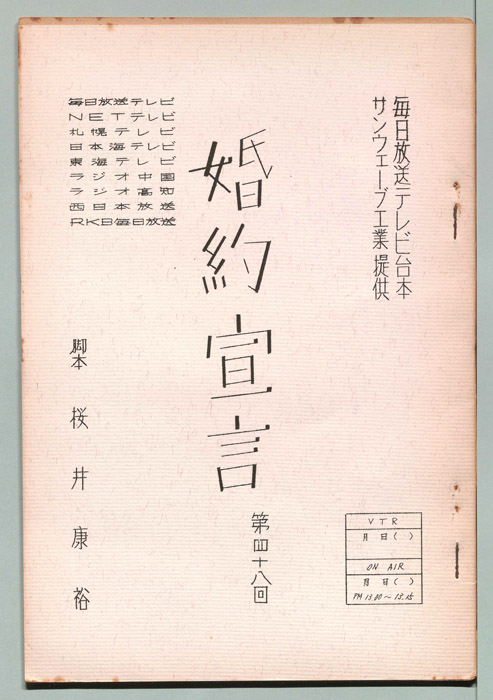 毎日放送テレビ台本
サンウェーブ工業提供
婚約宣言
第四十八回
毎日放送テレビ
NETテレビ
札幌テレビ
日本海テレビ
東海テレビ
ラジオ中国
ラジオ高知
西日本放送
RKB毎日放送
脚本 桜井康裕
VTR
月 日( )
ON AIR
月 日( )
PM 13.00〜13.15